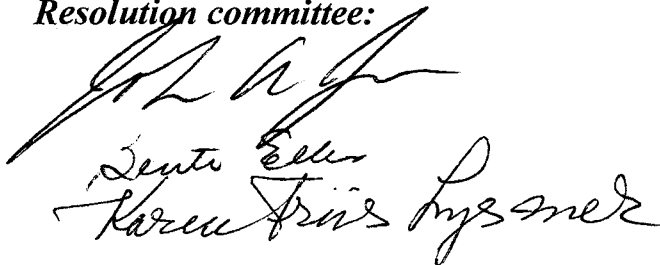 Resolution committee:
John A
Bente Eller
Karen Friis Lyssner